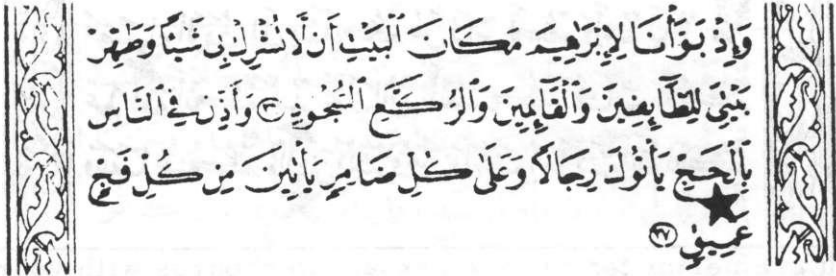 وَإِذْ بَوَّأْنَا لِإِبْرَٰهِيمَ مَكَانَ ٱلْبَيْتِ أَن لَّا تُشْرِكْ بِى شَيْـًٔا وَطَهِّرْ
بَيْتِىَ لِلطَّآئِفِينَ وَٱلْقَآئِمِينَ وَٱلرُّكَّعِ ٱلسُّجُودِ ٢٦ وَأَذِّن فِى ٱلنَّاسِ
بِٱلْحَجِّ يَأْتُوكَ رِجَالًا وَعَلَىٰ كُلِّ ضَامِرٍ يَأْتِينَ مِن كُلِّ فَجٍّ
عَمِيقٍ ٢٧